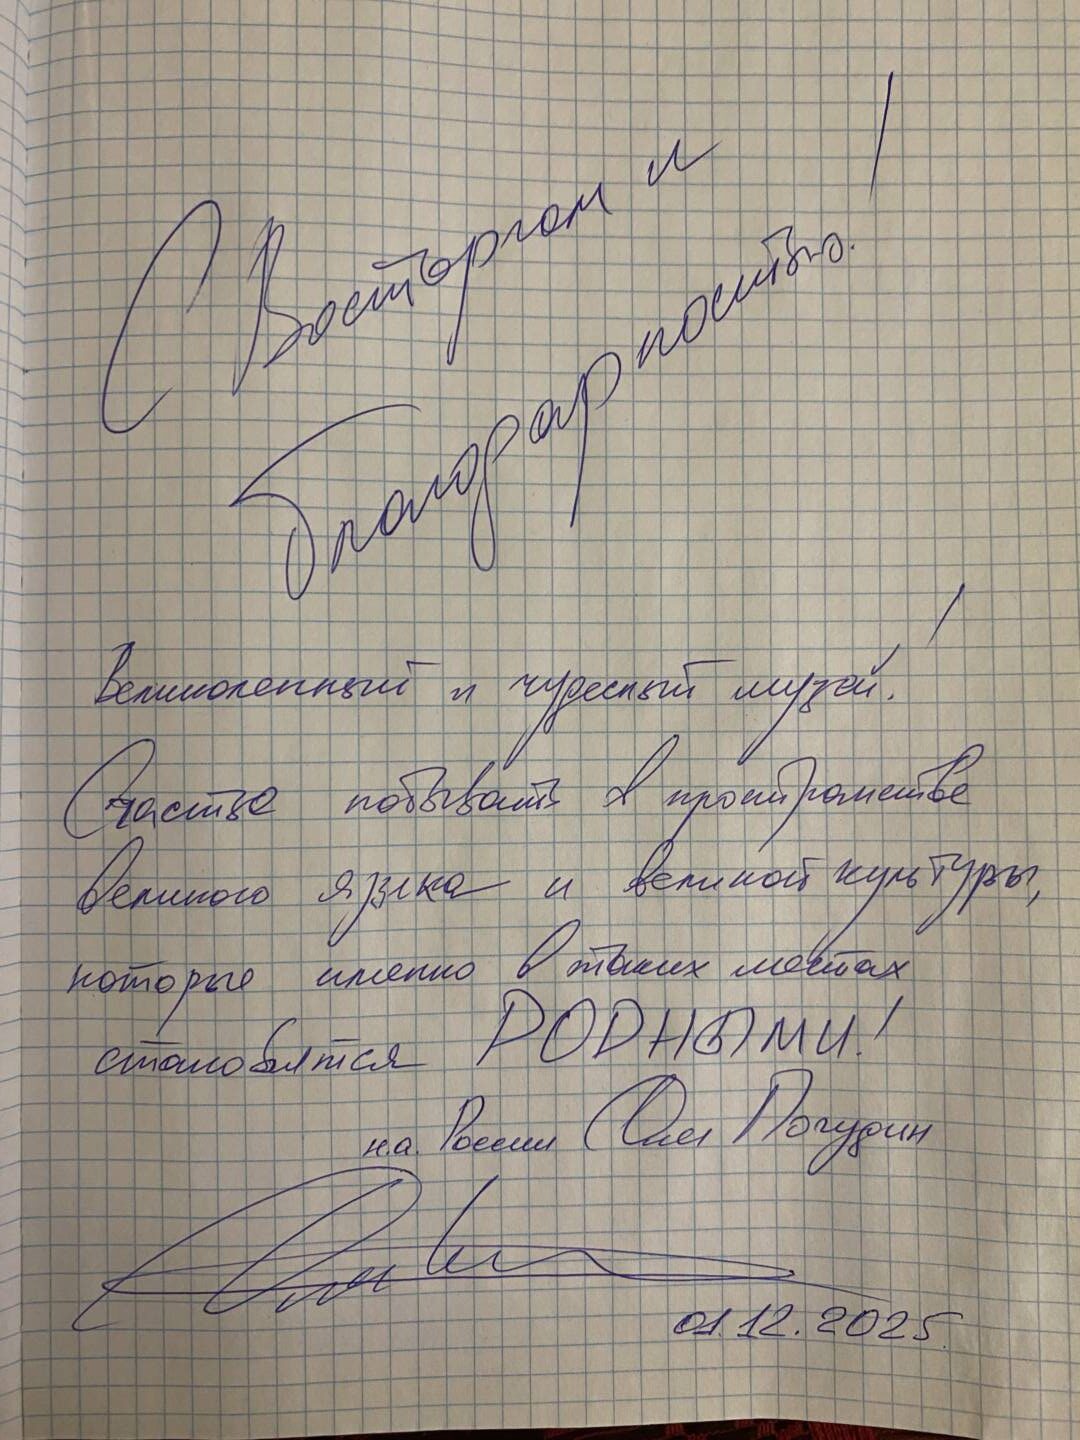 С Восторгом и
Благодарностью!
Великолепный и чудесный музей!
Счастье побывать в пространстве
великого языка и великой культуры,
которые именно в таких местах
становятся РОДНЫМИ!
н.а. России Олег Погудин
01.12.2025